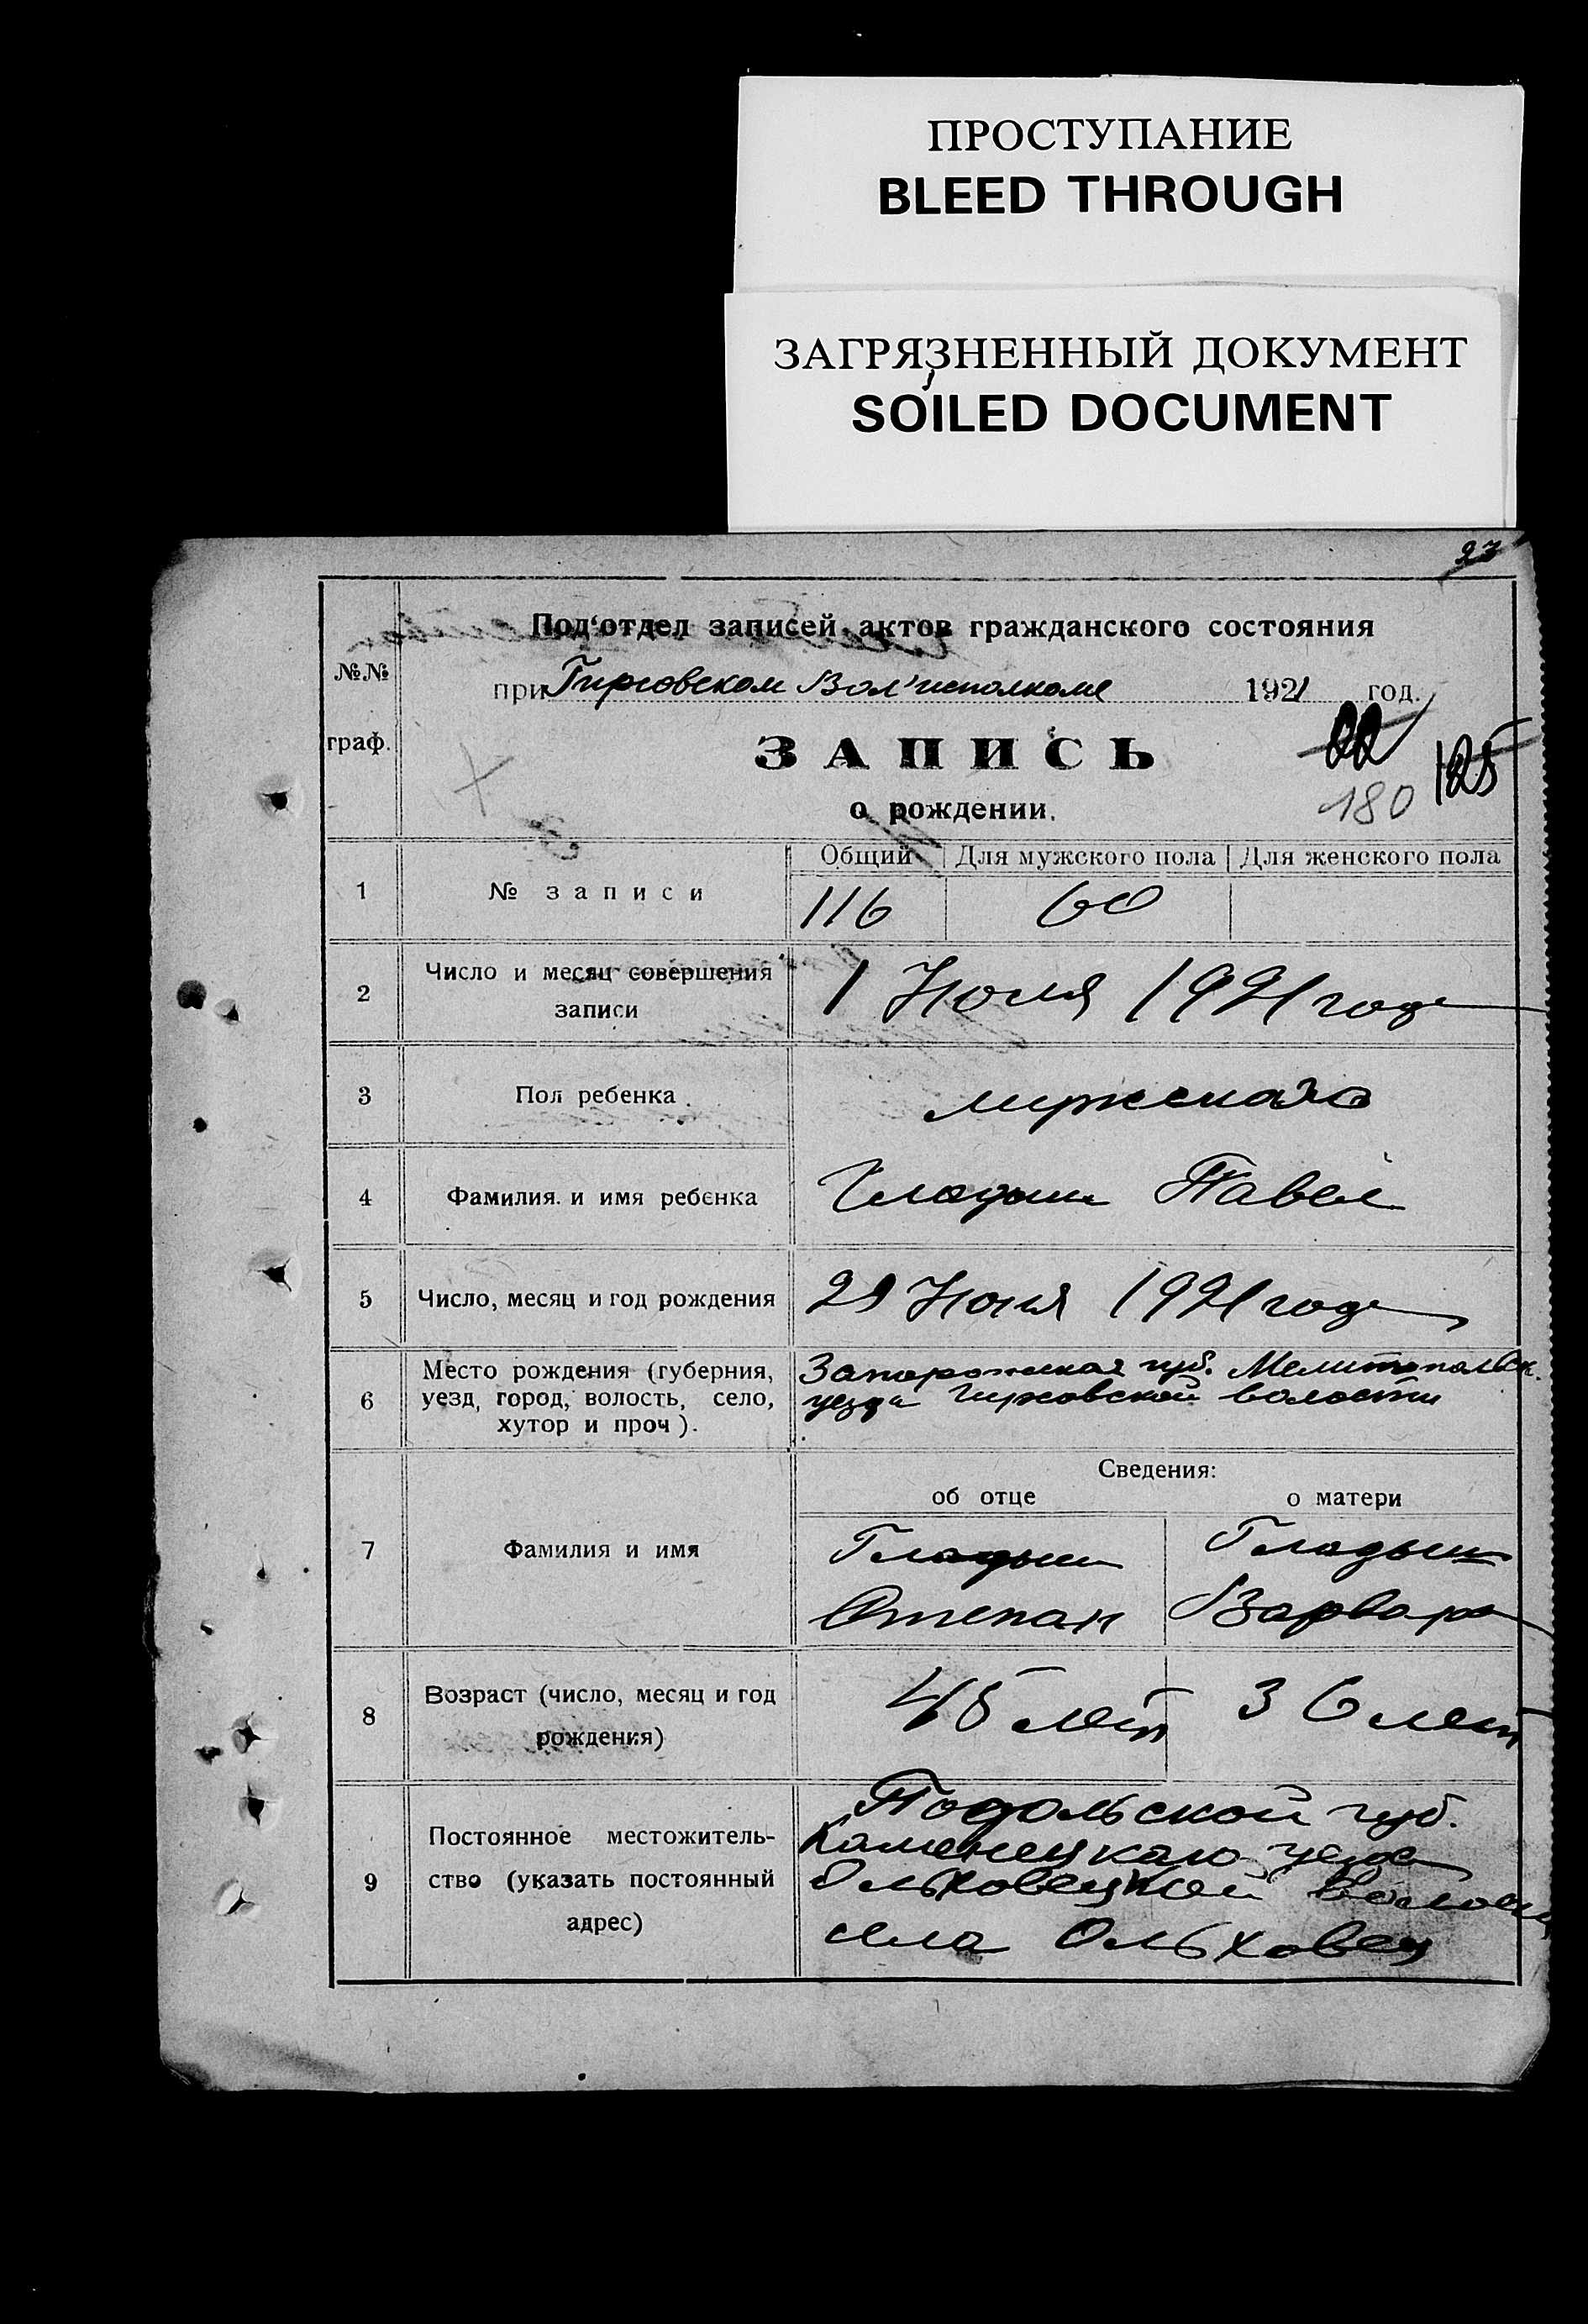 ПРОСТУПАНИЕ
BLEED THROUGH
ЗАГРЯЗНЕННЫЙ ДОКУМЕНТ
SOILED DOCUMENT
23
Под‘отдел записей актов гражданского состояния
№№
при Гирсовском Вол'исполкоме 1921 год.
граф.
ЗАПИСЬ
22
125
180
о рождении.
Общий Для мужского пола Для женского пола
1 № записи 116 60
2 Число и месяц совершения
записи
1 Июля 1921 года
3 Пол ребенка мужского
4 Фамилия и имя ребенка Гладыш Павел
5 Число, месяц и год рождения 29 Июня 1921 года
6 Место рождения (губерния,
уезд, город, волость, село,
хутор и проч).
Запорожская губ. Мелитопольск.
уезда Гирсовской волости
Сведения:
об отце о матери
7 Фамилия и имя
Гладыш Гладыш
Степан Варвара
8 Возраст (число, месяц и год
рождения)
45 лет 36 лет
9 Постоянное местожитель-
ство (указать постоянный
адрес)
Подольской губ.
Каменецкаго уезда
Ольховецкой волости
села Ольховец